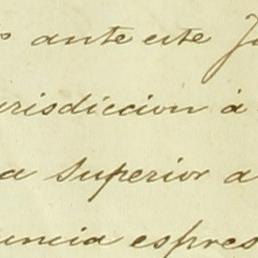 o ante este Ju
urisdiccion á
a superior a
uncia espres